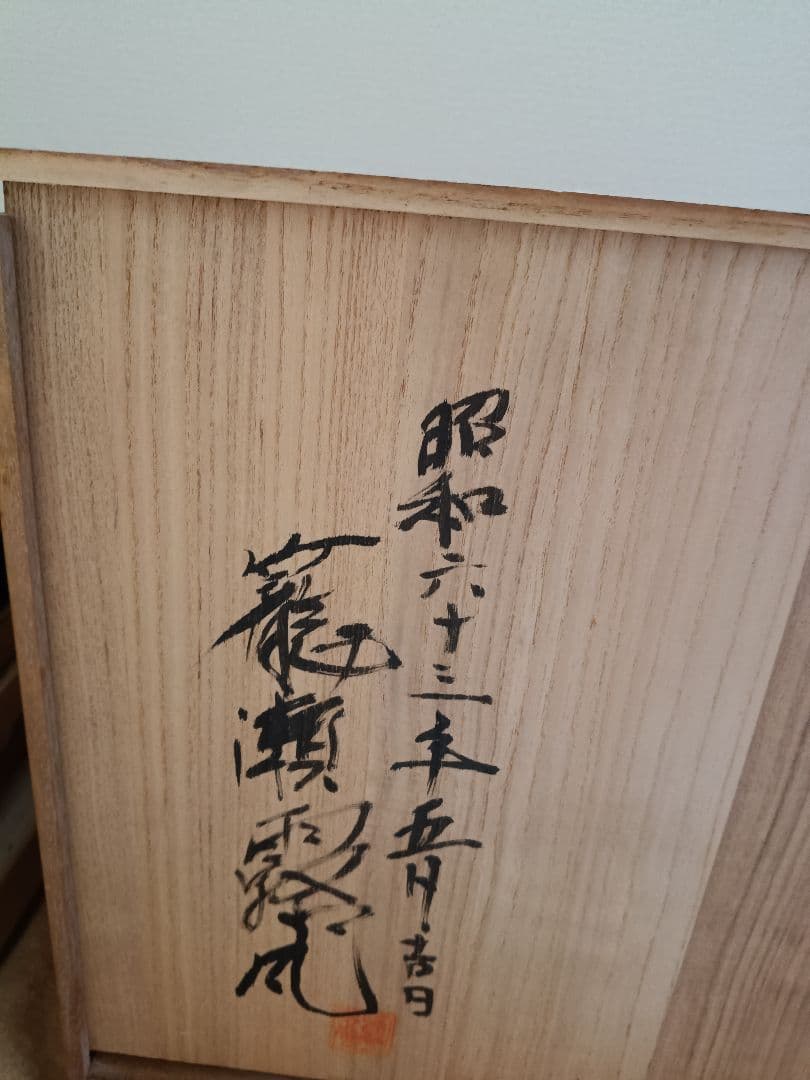 昭和六十三年五月吉日
籠瀬露風